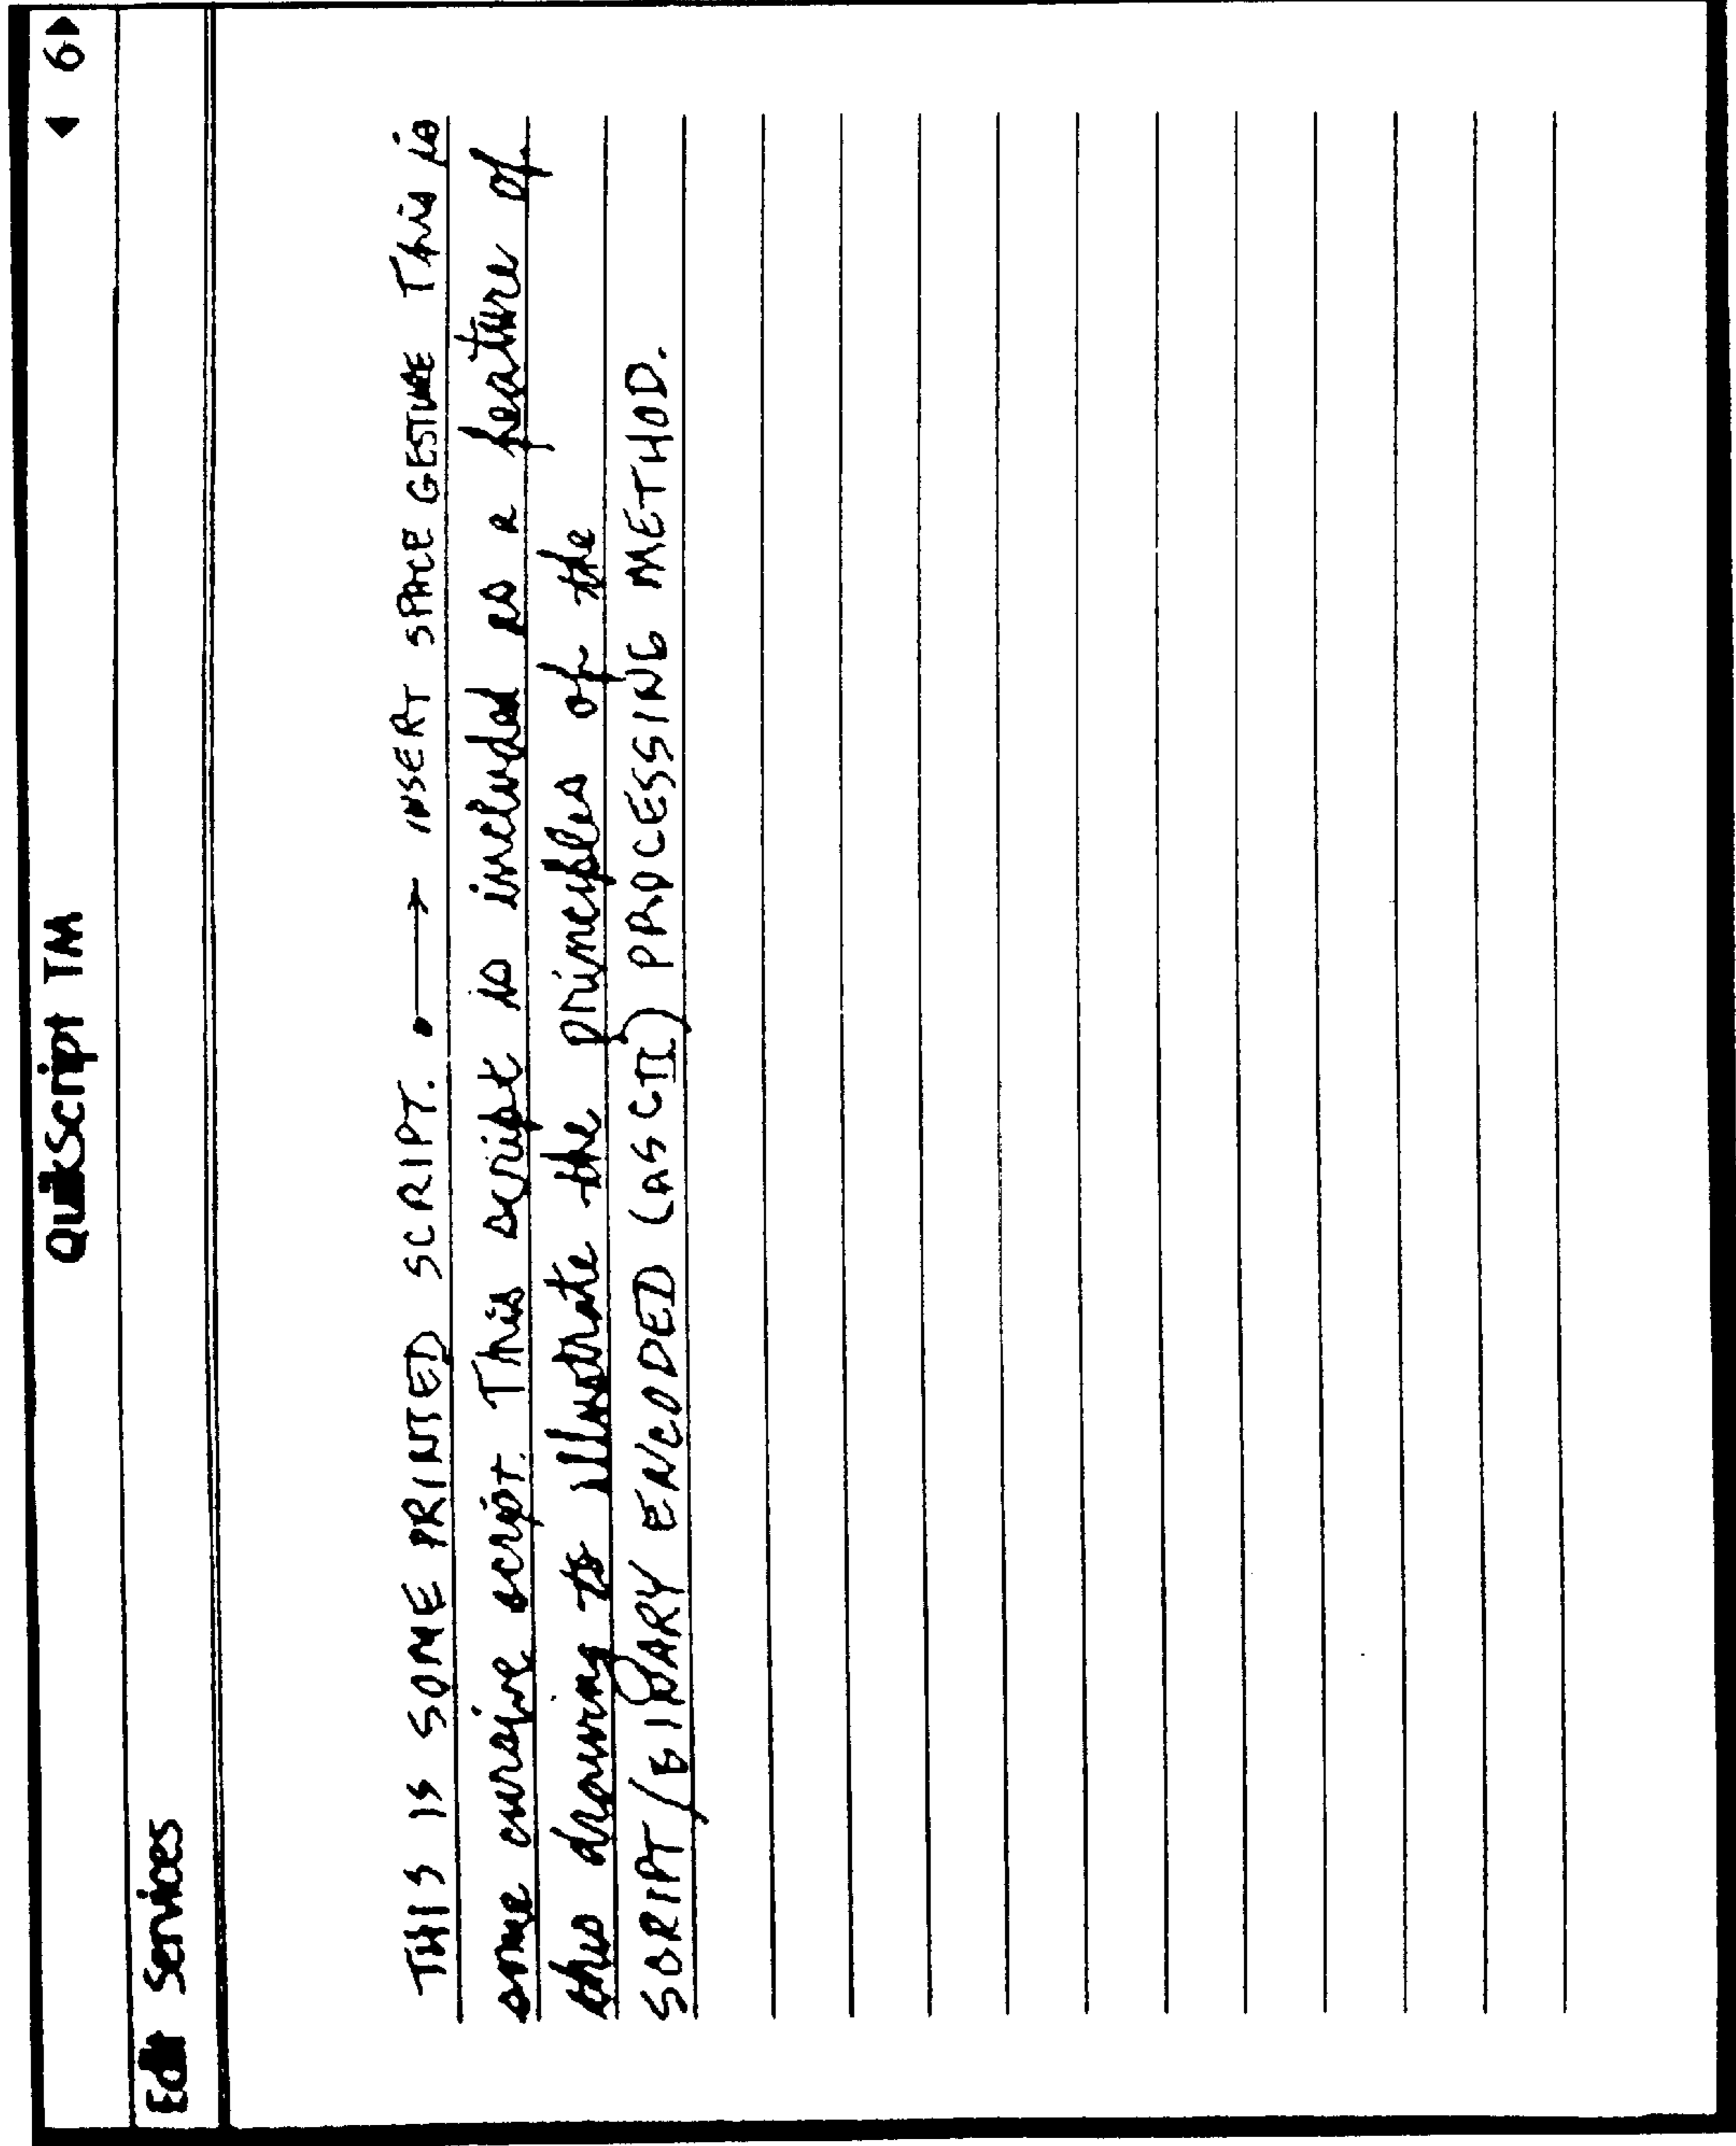 QuikScript TM ◀ 6 ▶
Edit Services
THIS IS SOME PRINTED SCRIPT. •⟶ INSERT SPACE GESTURE This is
some cursive script. This script is included as a feature of
this drawing to illustrate the principles of the
SCRIPT/BINARY ENCODED (ASCII) PROCESSING METHOD.